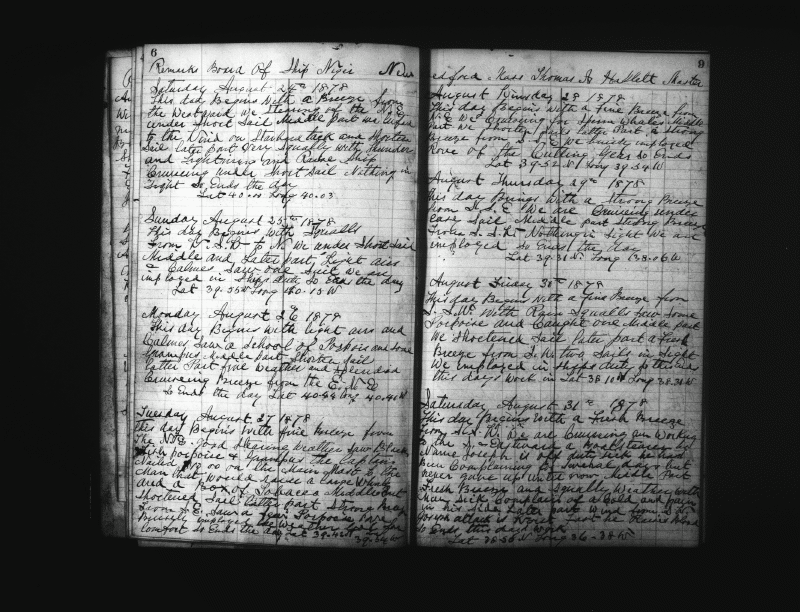 6
Remarks Board Of Ship Niger New
Saturday August 24th 1878
This day Begins With a Breeze from
the Westward we Steering to the
under Short Sail Middle part we
to the Wind on Starboard tack and Shorten
Sail later part Very Squally with thunder
and Lightning and Raine Ship
Cruising under Short Sail Nothing in
Sight So Ends the day
Lat 40.00 Long 40.03
Sunday August 25th 1878
This day Begins With Squalls
From W.S.W. to N. We under Short Sail
Middle and Later part Light airs
& Calmes Saw one Sail We are
imployed in Ships duty So Ends the day
Lat 39.35 N Long 40.15 W
Monday August 26 1878
This day Begins With light airs and
Calmes Saw a School of Porpois and some
Grampus Middle part Shorten Sail
Latter Part fine Weather and Splendid
Cruising Breeze from the E.N.E
So Ends the day Lat 40.44 Long 40.40 W
Tuesday August 27 1878
this day Begins With fine Breeze from
The N.E. Good Steaming Weather Saw Black
fish porpoise & Grampus the Captain
Nailed on the Main Mast to the
Man that Would raise a large Whale
and a Box of Tobacco Middle part
Shortened Sail Latter part Strong Breeze
From E. Saw Porpoise
Busily employed
Comfort So Ends the day Lat 39.42 N
39.54 W
9
edford Mass Thomas H Haslett Master
August 28 1878
This day Begins With a fine Breeze from
N.E. We Cruising for Sperm Whales Middle
Part We Shorten Sails Latter Part a Strong
Breeze from We imployed
of the Cutting Gear So Ends
Lat 39-52 N Long 39-54 W
August Thursday 29th 1878
This day Brings With a Strong Breeze
from We are Cruising under
Sail Middle part Strong Breeze
From S.S.W. Nothing in Sight We are
imployed So Ends the day
Lat 39.31 N. Long 38.06 W
August Friday 30th 1878
This day Begins With a Fine Breeze from
S.S.W. With Rain Squalls Saw Some
Porpoise and Caught one Middle part
We Shortened Sail later part a Fresh
Breeze from S.W. two Sails in Sight
We employed in Ships duty So the End
this days Work in Lat 38 10 N Long 38.31 W
Saturday August 31st 1878
This day Begins With a Fresh Breeze
from S.S.W. We are Cruising and Working
to the S. & Eastward a
Name Joseph is off duty Sick he had
Bin Complaining for Several days but
never gave up until now Middle Part
Fresh Breeze and Squally Weather with
Man Sick Complains of a Cold and pain
in his Side Later part Wind from S.W.
Joseph attack is Worst
So Ends this days Work
Lat 38-56 N Long 36-38 W